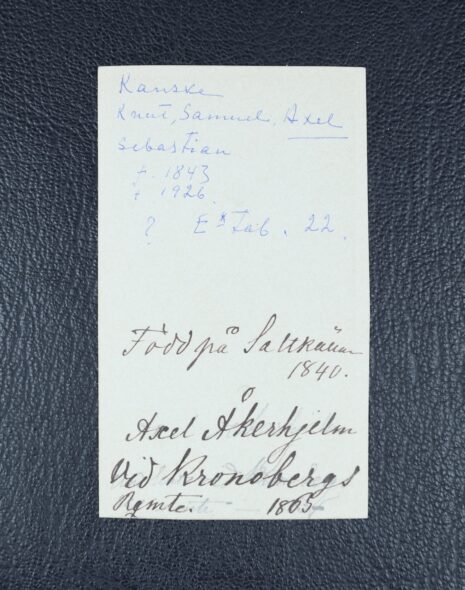 Kanske
Knut, Samuel, Axel
Sebastian
+. 1843
+ 1926.
? E* Tab. 22.
Född på Saltkällan
1840.
Axel Åkerhjelm
Vid Kronobergs
Rgmte. 1865